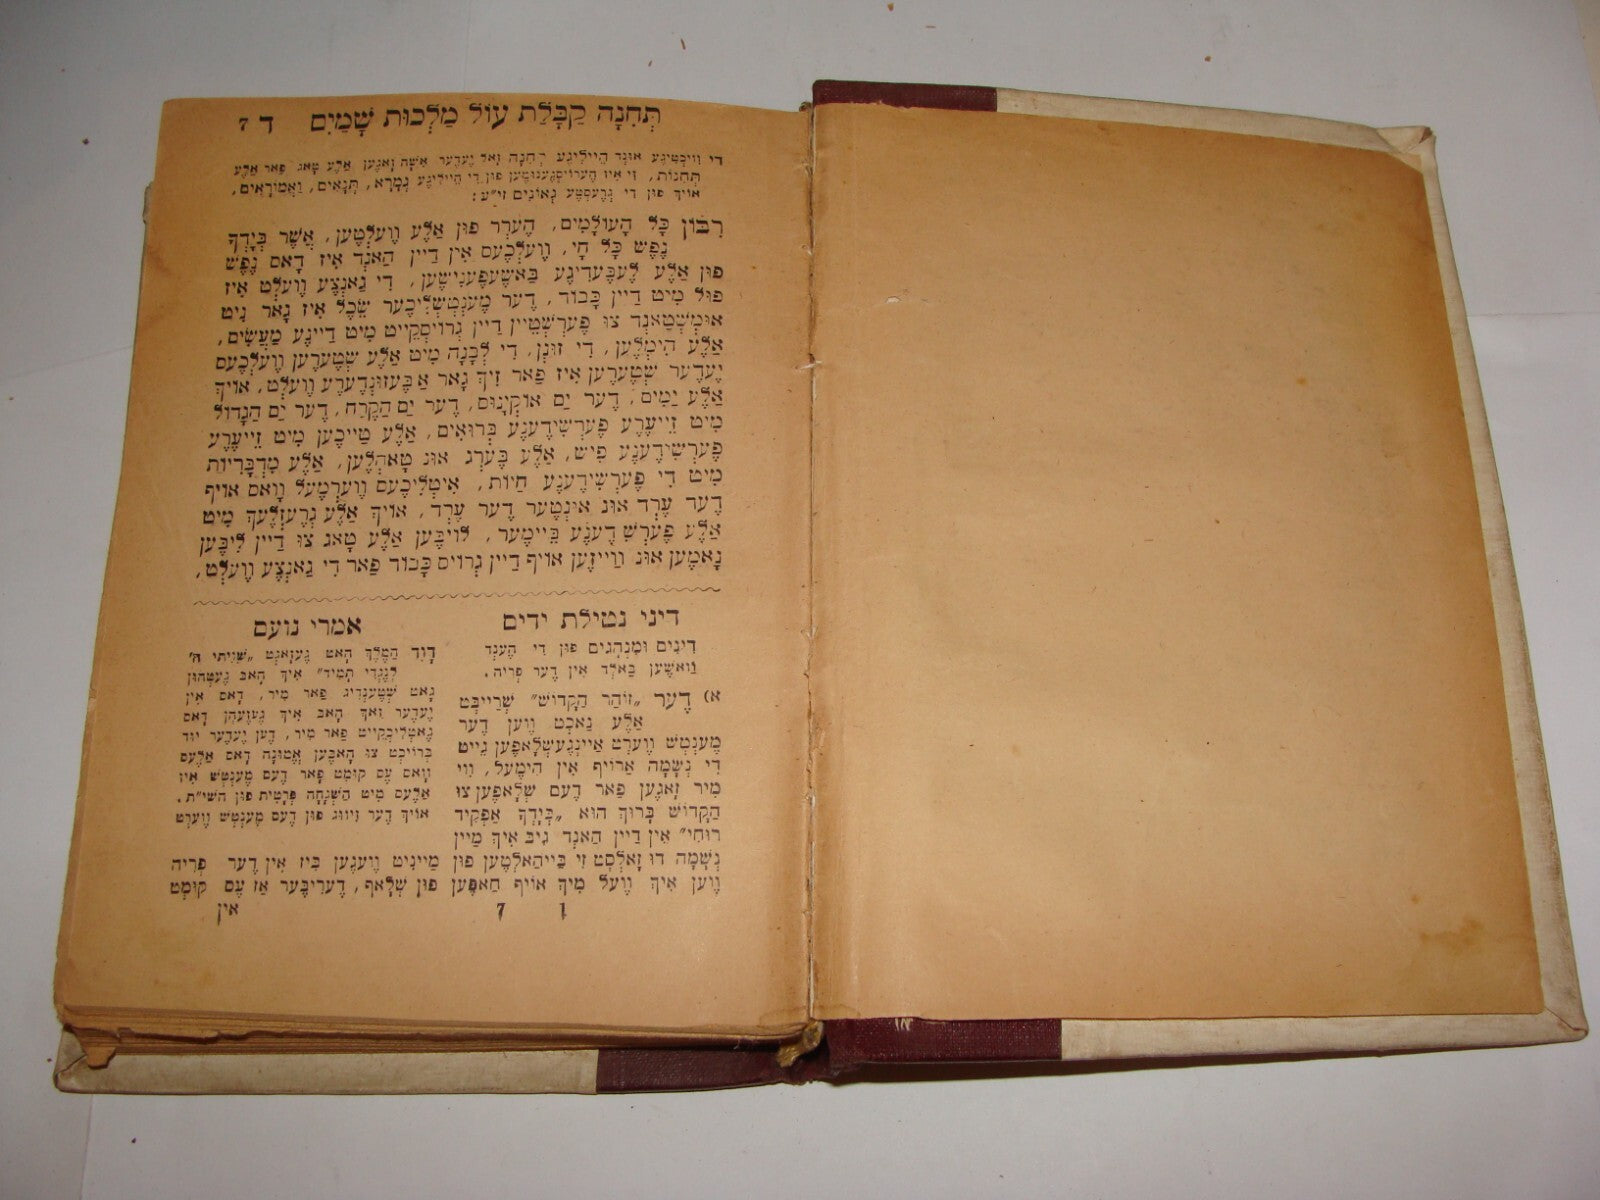 תְּחִנָה קַבָּלַת עוֹל מַלְכוּת שָׁמַיִם ד 7
די וויכטיגע אונד הייליגע תְּחִנָה זאָל יעדער אִשָה זאָגען אַלע טאָג פאַר אַלע
תְּחִנוֹת, זי איז הערויסגענומען פון די הייליגע גְמָרָא, תַּנָאִים, וַאֲמוֹרָאִים,
אויך פון די גרעסטע גאוֹנים זי"ע:
רִבּוֹן כָּל הָעוֹלָמִים, הֶערר פוּן אַלֶע וֶועלְטֶען, אֲשֶׁר בְּיָדְךָ
נֶפֶשׁ כָּל חָי, וֶועלְכֶעס אִין דַיין הַאנְד אִיז דָאס נֶפֶשׁ
פוּן אַלֶע לֶעבֶּעדִיגֶע בַּאשֶׁעפֶענִישֶׁען, דִי גַאנְצֶע וֶועלְט אִיז
פוּל מִיט דַיין כָּבוֹד, דֶער מֶענְטְשְׁלִיכֶער שֵׂכֶל אִיז גָאר נִיט
אוּמְשְׁטַאנְד צוּ פֶערְשְׁטֵיין דַיין גְרוֹיסְקֵייט מִיט דַיינֶע מַעֲשִׂים,
אַלֶע הִימְלֶען, דִי זוּנְן, דִי לְבָנָה מִיט אַלֶע שְׁטֶערֶען וֶועלְכֶעס
יֶעדֶער שְׁטֶערֶען אִיז פַאר זִיךְ גָאר אַבֶּעזוּנְדֶערֶע וֶועלְט, אוֹיךְ
אַלֶע יַמִים, דֶער יַם אוֹקְיָנוּס, דֶער יַם הַקֶרַח, דֶער יַם הַגָדוֹל
מִיט זֵייעֶרֶע פֶערְשִׁידֶענֶע בְּרוּאִים, אַלֶע טַייכֶען מִיט זֵייעֶרֶע
פֶערְשִׁידֶענֶע פִישׁ, אַלֶע בֶּערְג אוּנ טָאהְלֶען, אַלֶע מִדְבָּרִיוֹת
מִיט דִי פֶערְשִׁידֶענֶע חַיוֹת, אִיטְלִיכֶעס וֶוערְמֶעל וָואס אוֹיף
דֶער עֶרְד אוּנ אִינְטֶער דֶער עֶרְד, אוֹיךְ אַלֶע גְרֶעזְלֶעךְ מִיט
אַלֶע פֶערְשִׁדֶענֶע בֵּיימֶער, לוֹיבֶּען אַלֶע טָאג צוּ דַיין לִיבֶּען
נָאמֶען אוּנ ווַייזֶען אוֹיף דַיין גְרוֹיס כָּבוֹד פַאר דִי גַאנְצֶע וֶועלְט,
דיני נטילת ידים
דִינִים וּמִנְהָגִים פון די הענד
וואַשען באַלד אין דער פריה.
א) דֶער „זוֹהַר הַקָדוֹשׁ" שְׁרַייבְּט
אַלֶע נַאכְט וֶוען דֶער
מֶענְטְשׁ ווֶערְט אַיינְגֶעשְׁלָאפֶען גֵייט
דִי נְשָׁמָה אַרוֹיף אִין הִימֶעל, ווִי
מִיר זָאגֶען פַאר דֶעם שְׁלָאפֶען צוּ
הַקָדוֹשׁ בָּרוּךְ הוּא „בְּיָדְךָ אַפְקִיד
רוּחִי" אִין דַיין הַאנְד גִיבּ אִיךְ מַיין
נְשָׁמָה דוּ זָאלְסְט זִי בֵּייהַאלְטֶען פוּן מַיינִיט וֶועגֶען בִּיז אִין דֶער פְרִיה
וֶוען אִיךְ וֶועל מִיךְ אוֹיף חַאפֶּען פוּן שְׁלָאף, דֶערִיבֶּער אַז עֶס קוּמְט
אמרי נועם
דָוִד הַמֶלֶךְ האָט געזאָגט „שִׁוִיתִי ה'
לְנֶגְדִי תָמִיד" איך האָב געטהון
גאָט שטענדיג פאַר מיר, דאָס אין
יעדער זאַך האָב איך געזעהן דאָס
געטליכקייט פאַר מיר, דען יעדער יוד
ברויכט צו האָבען אֱמוּנָה דאָס אַלעס
וואָס עס קומט פאָר דעם מענטש איז
אַלעס מיט הַשְׁגָחָה פְּרָטִית פון השי"ת.
אויך דער זיווג פון דעם מענטש ווערט
אין
ו 7